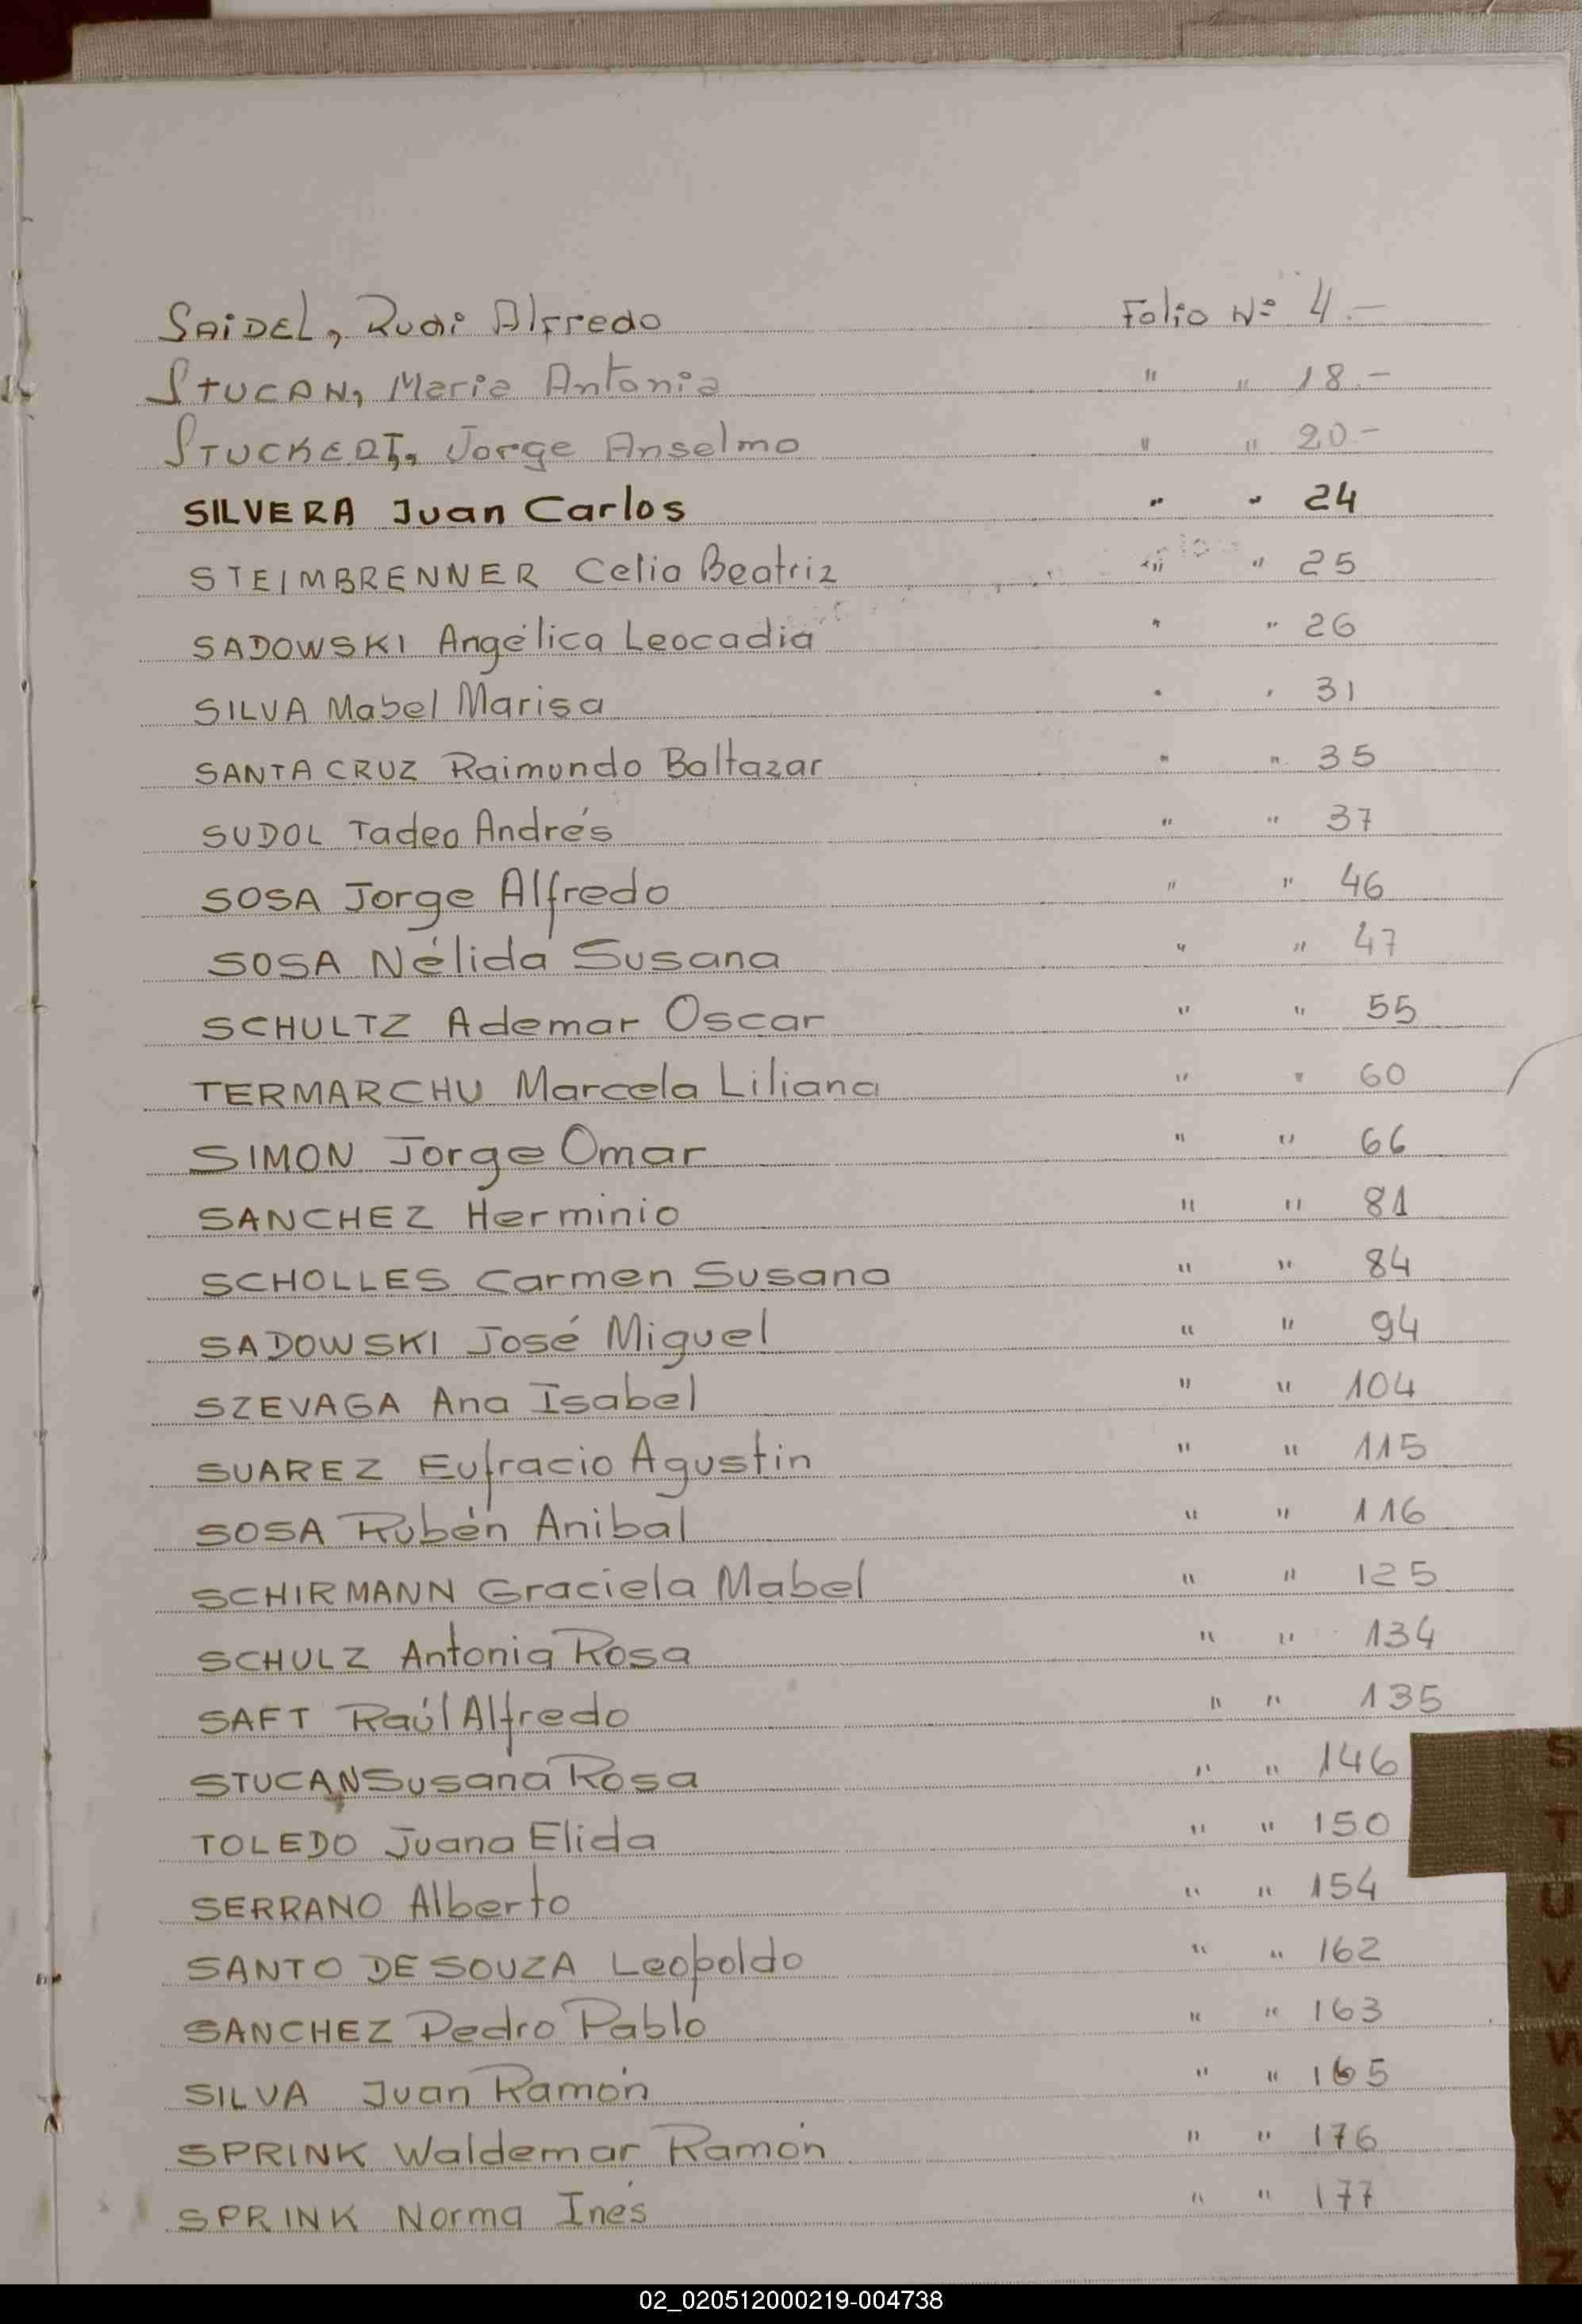 SAIDEL, Rudi Alfredo Folio Nº 4.-
STUCAN, Maria Antonia " " 18.-
STUCKERT, Jorge Anselmo " " 20.-
SILVERA Juan Carlos " " 24
STEIMBRENNER Celia Beatriz " " 25
SADOWSKI Angélica Leocadia " " 26
SILVA Mabel Marisa " " 31
SANTA CRUZ Raimundo Baltazar " " 35
SUDOL Tadeo Andrés " " 37
SOSA Jorge Alfredo " " 46
SOSA Nélida Susana " " 47
SCHULTZ Ademar Oscar " " 55
TERMARCHU Marcela Liliana " " 60
SIMON Jorge Omar " " 66
SANCHEZ Herminio " " 81
SCHOLLES Carmen Susana " " 84
SADOWSKI José Miguel " " 94
SZEVAGA Ana Isabel " " 104
SUAREZ Eufracio Agustin " " 115
SOSA Rubén Anibal " " 116
SCHIRMANN Graciela Mabel " " 125
SCHULZ Antonia Rosa " " 134
SAFT Raúl Alfredo " " 135
STUCAN Susana Rosa " " 146
TOLEDO Juana Elida " " 150
SERRANO Alberto " " 154
SANTO DE SOUZA Leopoldo " " 162
SANCHEZ Pedro Pablo " " 163
SILVA Juan Ramón " " 165
SPRINK Waldemar Ramón " " 176
SPRINK Norma Inés " " 177
S
T
U
V
W
X
Y
Z
02_020512000219-004738